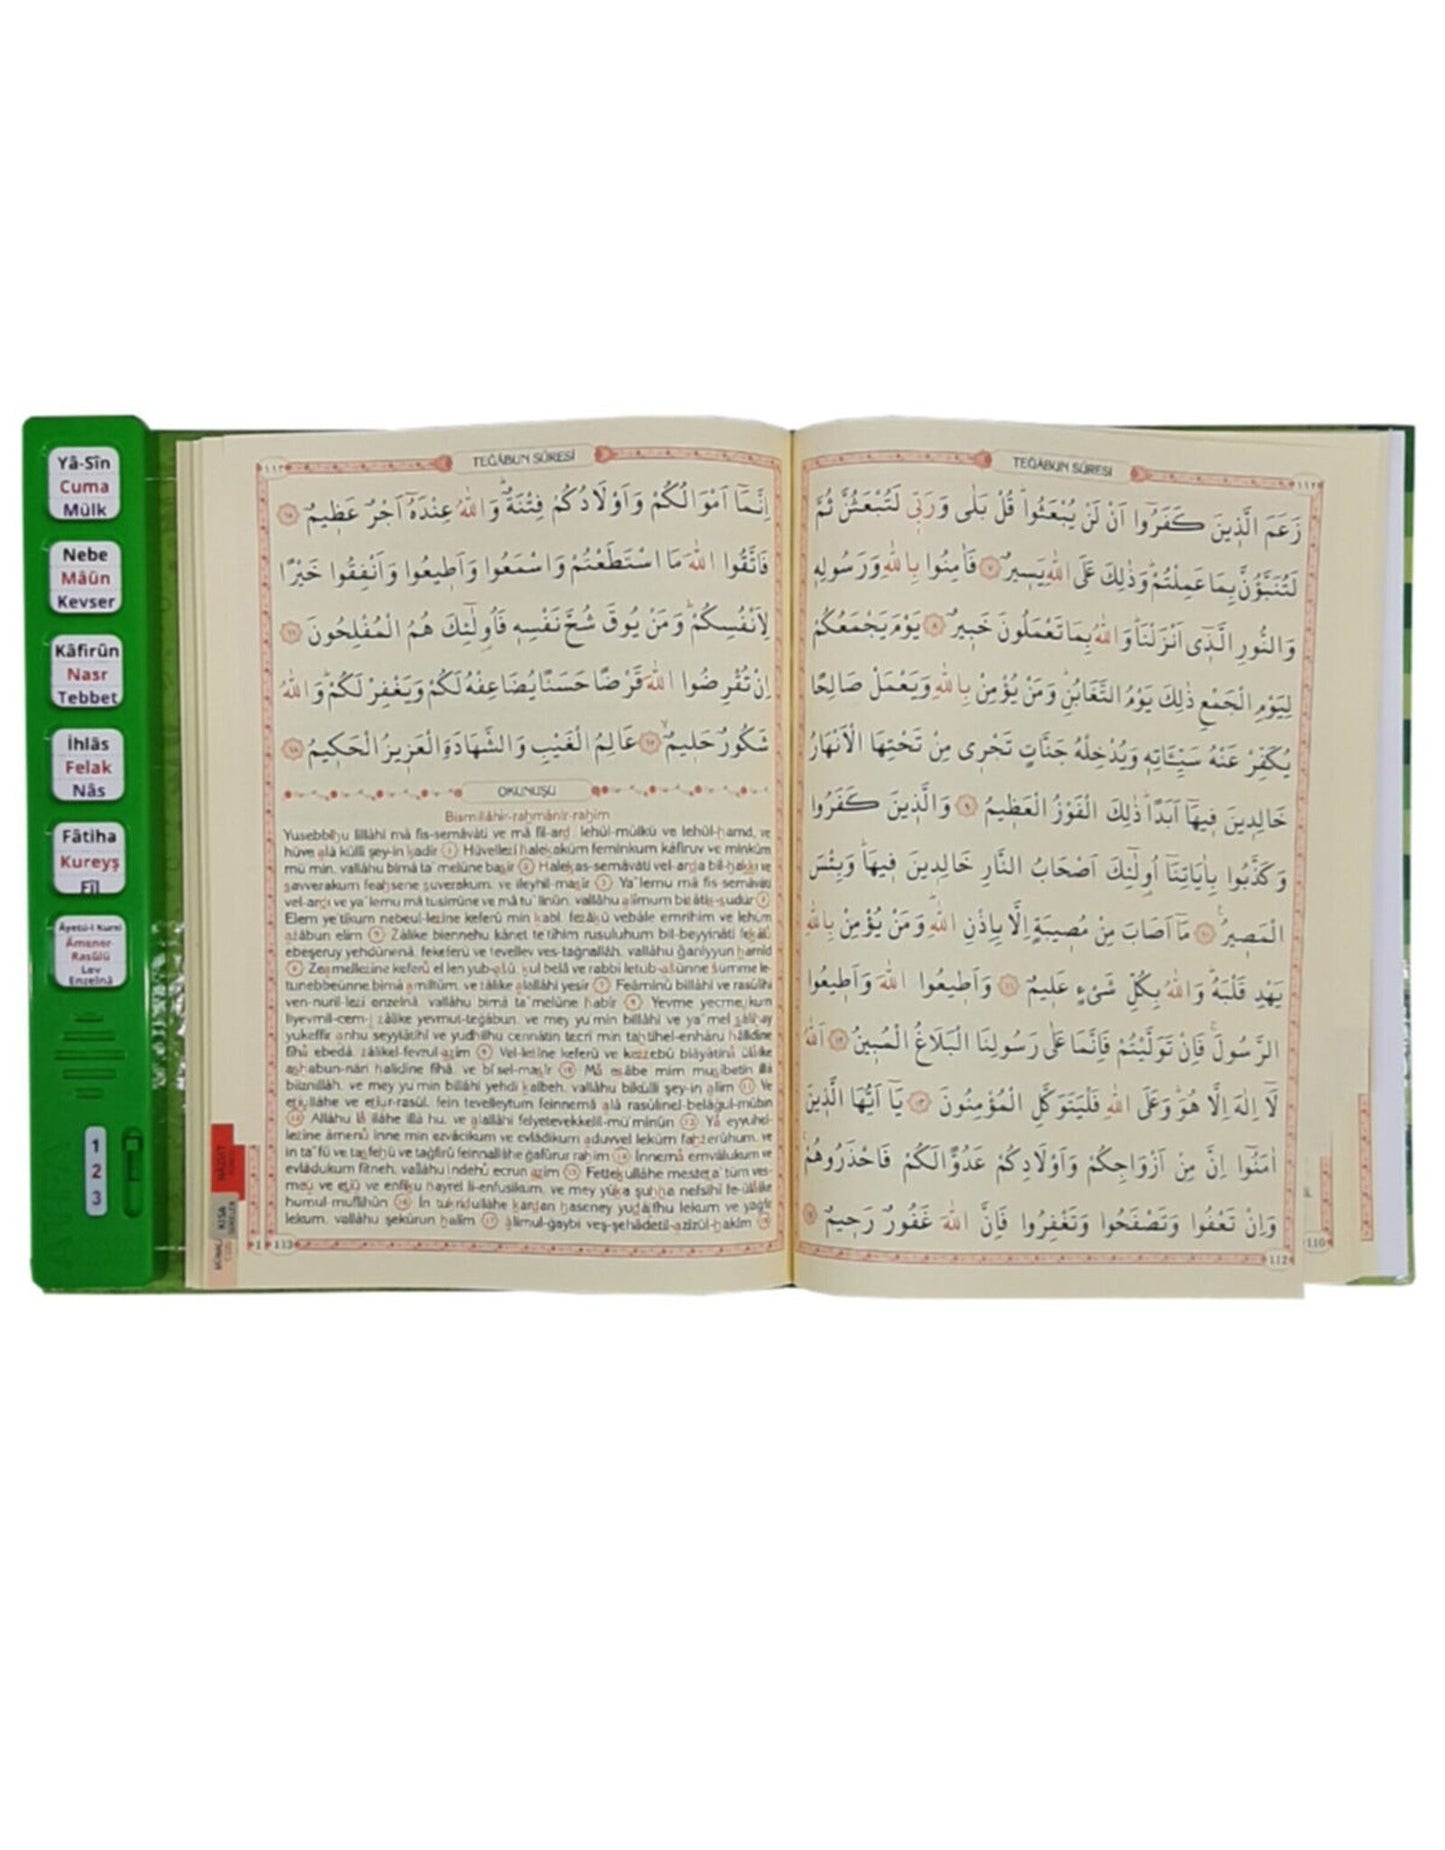 Yâ-Sîn
Cuma
Mülk
Nebe
Mâûn
Kevser
Kâfirûn
Nasr
Tebbet
İhlâs
Felak
Nâs
Fâtiha
Kureyş
Fîl
Âyetü-l Kürsî
Âmener-
Rasûlü
Lev
Enzelnâ
1
2
3
TEĞÂBUN SÛRESİ
١١٢
زَعَمَ الَّذِينَ كَفَرُٓوا اَنْ لَنْ يُبْعَثُواۜ قُلْ بَلٰى وَرَبّ۪ي لَتُبْعَثُنَّ ثُمَّ
لَتُنَبَّؤُنَّ بِمَا عَمِلْتُمْۜ وَذٰلِكَ عَلَى اللّٰهِ يَس۪يرٌ ﴿٧﴾ فَاٰمِنُوا بِاللّٰهِ وَرَسُولِه۪
وَالنُّورِ الَّذ۪ٓي اَنْزَلْنَاۜ وَاللّٰهُ بِمَا تَعْمَلُونَ خَب۪يرٌ ﴿٨﴾ يَوْمَ يَجْمَعُكُمْ
لِيَوْمِ الْجَمْعِ ذٰلِكَ يَوْمُ التَّغَابُنِۜ وَمَنْ يُؤْمِنْ بِاللّٰهِ وَيَعْمَلْ صَالِحًا
يُكَفِّرْ عَنْهُ سَيِّـَٔاتِه۪ وَيُدْخِلْهُ جَنَّاتٍ تَجْر۪ي مِنْ تَحْتِهَا الْاَنْهَارُ
خَالِد۪ينَ ف۪يهَٓا اَبَدًاۜ ذٰلِكَ الْفَوْزُ الْعَظ۪يمُ ﴿٩﴾ وَالَّذ۪ينَ كَفَرُوا
وَكَذَّبُوا بِاٰيَاتِنَٓا اُو۬لٰٓئِكَ اَصْحَابُ النَّارِ خَالِد۪ينَ ف۪يهَاۜ وَبِئْسَ
الْمَص۪يرُ ﴿١٠﴾ مَٓا اَصَابَ مِنْ مُص۪يبَةٍ اِلَّا بِاِذْنِ اللّٰهِۜ وَمَنْ يُؤْمِنْ بِاللّٰهِ
يَهْدِ قَلْبَهُۜ وَاللّٰهُ بِكُلِّ شَيْءٍ عَل۪يمٌ ﴿١١﴾ وَاَط۪يعُوا اللّٰهَ وَاَط۪يعُوا
الرَّسُولَۚ فَاِنْ تَوَلَّيْتُمْ فَاِنَّمَا عَلٰى رَسُولِنَا الْبَلَاغُ الْمُب۪ينُ ﴿١٢﴾ اَللّٰهُ
لَٓا اِلٰهَ اِلَّا هُوَۜ وَعَلَى اللّٰهِ فَلْيَتَوَكَّلِ الْمُؤْمِنُونَ ﴿١٣﴾ يَٓا اَيُّهَا الَّذ۪ينَ
اٰمَنُٓوا اِنَّ مِنْ اَزْوَاجِكُمْ وَاَوْلَادِكُمْ عَدُوًّا لَكُمْ فَاحْذَرُوهُمْۚ
وَاِنْ تَعْفُوا وَتَصْفَحُوا وَتَغْفِرُوا فَاِنَّ اللّٰهَ غَفُورٌ رَح۪يمٌ ﴿١٤﴾
112
110
TEĞÂBUN SÛRESİ
١١٣
اِنَّمَٓا اَمْوَالُكُمْ وَاَوْلَادُكُمْ فِتْنَةٌۜ وَاللّٰهُ عِنْدَهُٓ اَجْرٌ عَظ۪يمٌ ﴿١٥﴾
فَاتَّقُوا اللّٰهَ مَا اسْتَطَعْتُمْ وَاسْمَعُوا وَاَط۪يعُوا وَاَنْفِقُوا خَيْرًا
لِاَنْفُسِكُمْۜ وَمَنْ يُوقَ شُحَّ نَفْسِه۪ فَاُو۬لٰٓئِكَ هُمُ الْمُفْلِحُونَ ﴿١٦﴾
اِنْ تُقْرِضُوا اللّٰهَ قَرْضًا حَسَنًا يُضَاعِفْهُ لَكُمْ وَيَغْفِرْ لَكُمْۜ وَاللّٰهُ
شَكُورٌ حَل۪يمٌۙ ﴿١٧﴾ عَالِمُ الْغَيْبِ وَالشَّهَادَةِ الْعَز۪يزُ الْحَك۪يمُ ﴿١٨﴾
OKUNUŞU
Bismillâhir-rahmânir-rahîm
Yusebbihu lillâhi mâ fis-semâvâti ve mâ fil-ard, lehül-mülkü ve lehül-hamd, ve
hüve alâ külli şey-in kadîr 1 Hüvellezî halekaküm feminküm kâfiruv ve minküm
mü'min, vallâhu bimâ ta'melûne basîr 2 Halekas-semâvâti vel-arda bil-hakkı ve
savverakum feahsene suverakum, ve ileyhil-masîr 3 Ya'lemu mâ fis-semâvâti
vel-ardı ve ya'lemu mâ tusirrûne ve mâ tu'linûn, vallâhu alîmum bizâtis-sudûr 4
Elem ye'tikum nebeul-lezîne keferû min kabl, fezâkû vebâle emrihim ve lehüm
azâbun elîm 5 Zâlike biennehu kânet te'tîhim rusuluhum bil-beyyinâti fekâlû
ebeşeruy yehdûnenâ, fekeferû ve tevellev ves-tağnallâh, vallâhu ğaniyyun hamîd
6 Zeamellezîne keferû el len yub-asû, kul belâ ve rabbî letub-asünne sümme le-
tunebbeünne bimâ amiltüm, ve zâlike alallâhi yesîr 7 Feâminû billâhi ve rasûlihî
ven-nuril-lezî enzelnâ, vallâhu bimâ ta'melûne habîr 8 Yevme yecmeukum
liyevmil-cem-i zâlike yevmut-teğâbun, ve mey yu'min billâhi ve ya'mel sâlihay
yukeffir anhu seyyiâtihî ve yudhilhu cennâtin tecrî min tahtihel-enhâru hâlidîne
fîhâ ebedâ, zâlikel-fevzul-azîm 9 Vel-lezîne keferû ve kezzebû biâyâtinâ ülâike
ashabun-nâri hâlidîne fîhâ, ve bi'sel-masîr 10 Mâ esâbe mim musîbetin illâ
biiznillâh, ve mey yu'min billâhi yehdi kalbeh, vallâhu bikülli şey-in alîm 11 Ve
etîullâhe ve etîur-rasûl, fein tevelleytum feinnemâ alâ rasûlinel-belâğul-mübîn
12 Allâhu lâ ilâhe illâ hu, ve alallâhi felyetevekkelil-mü'minûn 13 Yâ eyyuhel-
lezîne âmenû inne min ezvâcikum ve evlâdikum aduvvel lekum fahzerûhum, ve
in ta'fû ve tasfehû ve tağfirû feinnallâhe ğafûrur rahîm 14 İnnemâ emvâlukum ve
evlâdukum fitneh, vallâhu indehû ecrun azîm 15 Fettekullâhe mesteta'tüm ves-
meû ve etîû ve enfiku hayrel li-enfusikum, ve mey yûka şuhha nefsihî fe-ülâike
humul-muflihûn 16 İn tukridullâhe kardan haseney yudâıfhu lekum ve yağfir
lekum, vallâhu şekûrun halîm 17 âlimul-ğaybi veş-şehâdetil-azîzül-hakîm 18
113
KISA
SÛRELER